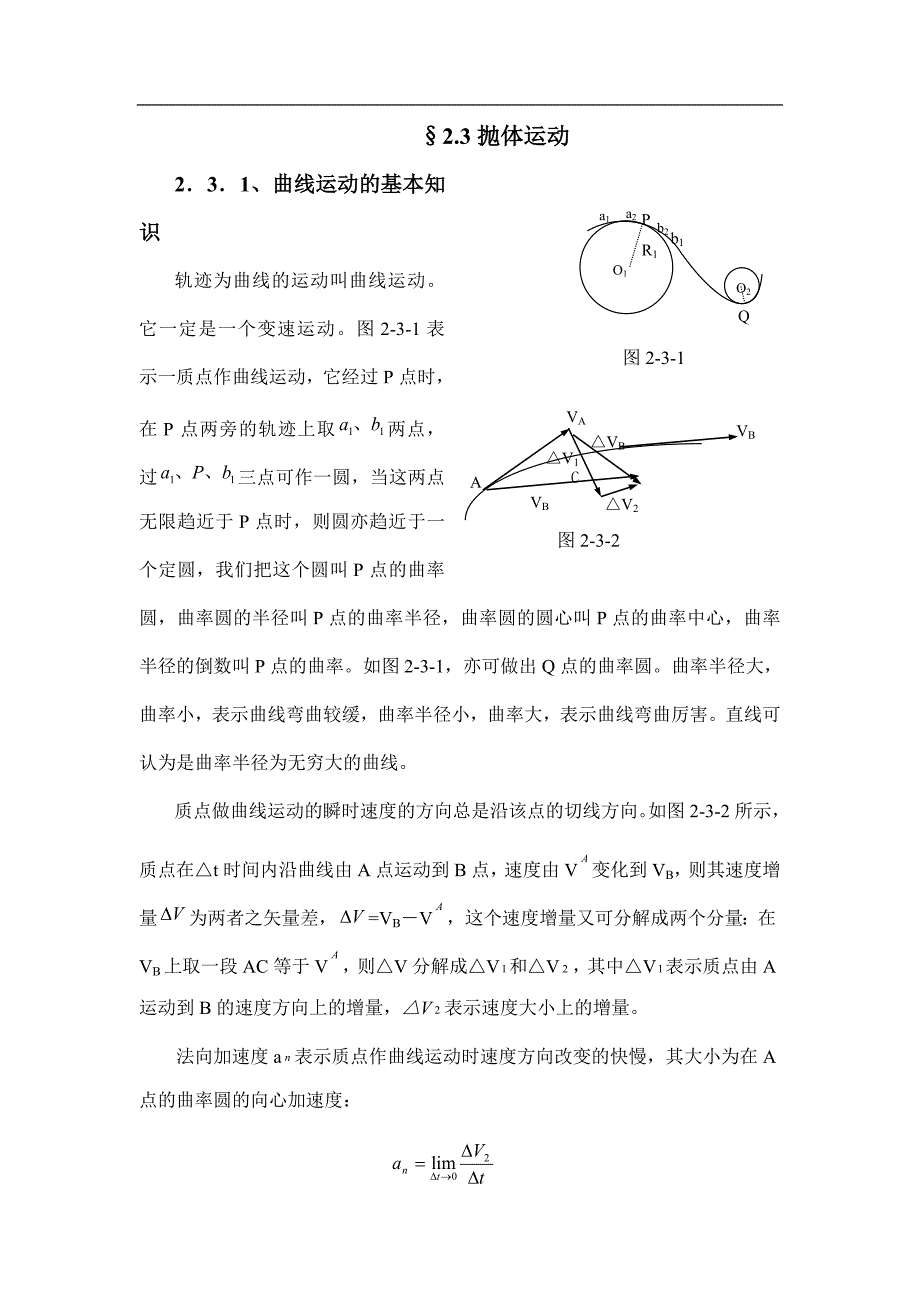 §2.3 抛体运动
2．3．1、曲线运动的基本知
识
轨迹为曲线的运动叫曲线运动。
它一定是一个变速运动。图 2-3-1 表
示一质点作曲线运动，它经过 P 点时，
在 P 点两旁的轨迹上取a1、b1两点，
过a1、P、b1三点可作一圆，当这两点
无限趋近于 P 点时，则圆亦趋近于一
个定圆，我们把这个圆叫 P 点的曲率
a1 a2 P b2 b1
R1
O1
O2
Q
图 2-3-1
VA
△VB
VB
△V1
A
C
VB
△V2
图 2-3-2
圆，曲率圆的半径叫 P 点的曲率半径，曲率圆的圆心叫 P 点的曲率中心，曲率
半径的倒数叫 P 点的曲率。如图 2-3-1，亦可做出 Q 点的曲率圆。曲率半径大，
曲率小，表示曲线弯曲较缓，曲率半径小，曲率大，表示曲线弯曲厉害。直线可
认为是曲率半径为无穷大的曲线。
质点做曲线运动的瞬时速度的方向总是沿该点的切线方向。如图 2-3-2 所示，
质点在△t 时间内沿曲线由 A 点运动到 B 点，速度由 V A 变化到 VB，则其速度增
量ΔV为两者之矢量差，ΔV=VB－V A，这个速度增量又可分解成两个分量：在
VB上取一段 AC 等于 V A，则△V 分解成△V1和△V2，其中△V1表示质点由 A
运动到 B 的速度方向上的增量，△V2 表示速度大小上的增量。
法向加速度 an表示质点作曲线运动时速度方向改变的快慢，其大小为在 A
点的曲率圆的向心加速度：
an = lim Δt→0 ΔV2/Δt